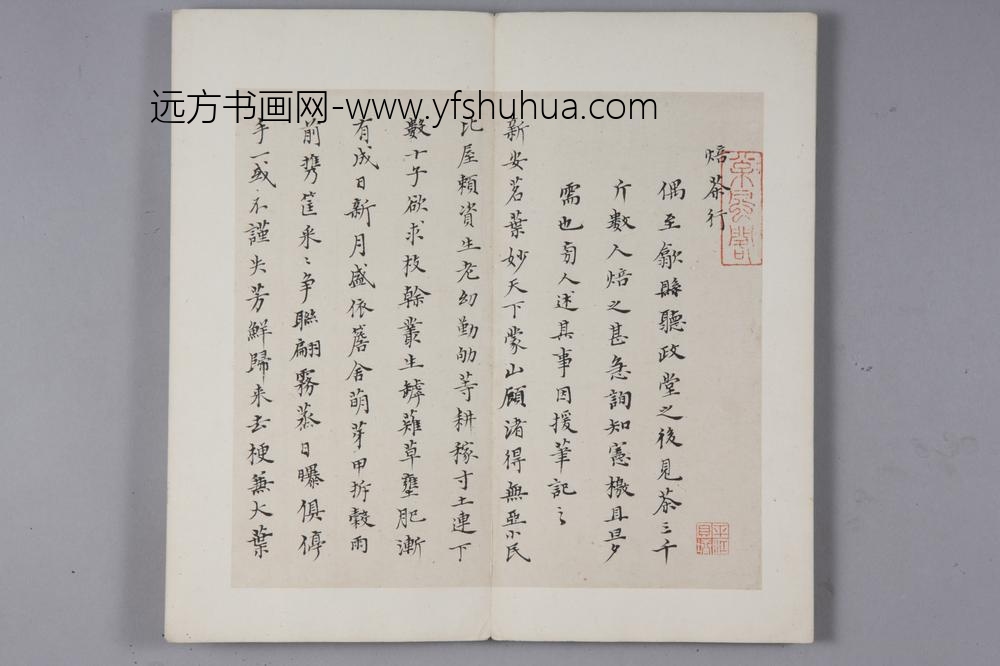 远方书画网-www.yfshuhua.com
焙茶行
偶至歙縣聽政堂之後見茶三千
斤數人焙之甚急詢知憲檄且夕
需也旁人述其事因援筆記之
新安茗葉妙天下蒙山顧渚得無亞小民
比屋賴資生老幼勤劬等耕稼寸土連下
數十子欲求枝幹叢生罅薙草壅肥漸
有成日新月盛依簷舍萌芽甲拆穀雨
前携筐采〻爭聯翩霧蒸日曝俱停
手一或不謹失芳鮮歸来去梗兼大葉